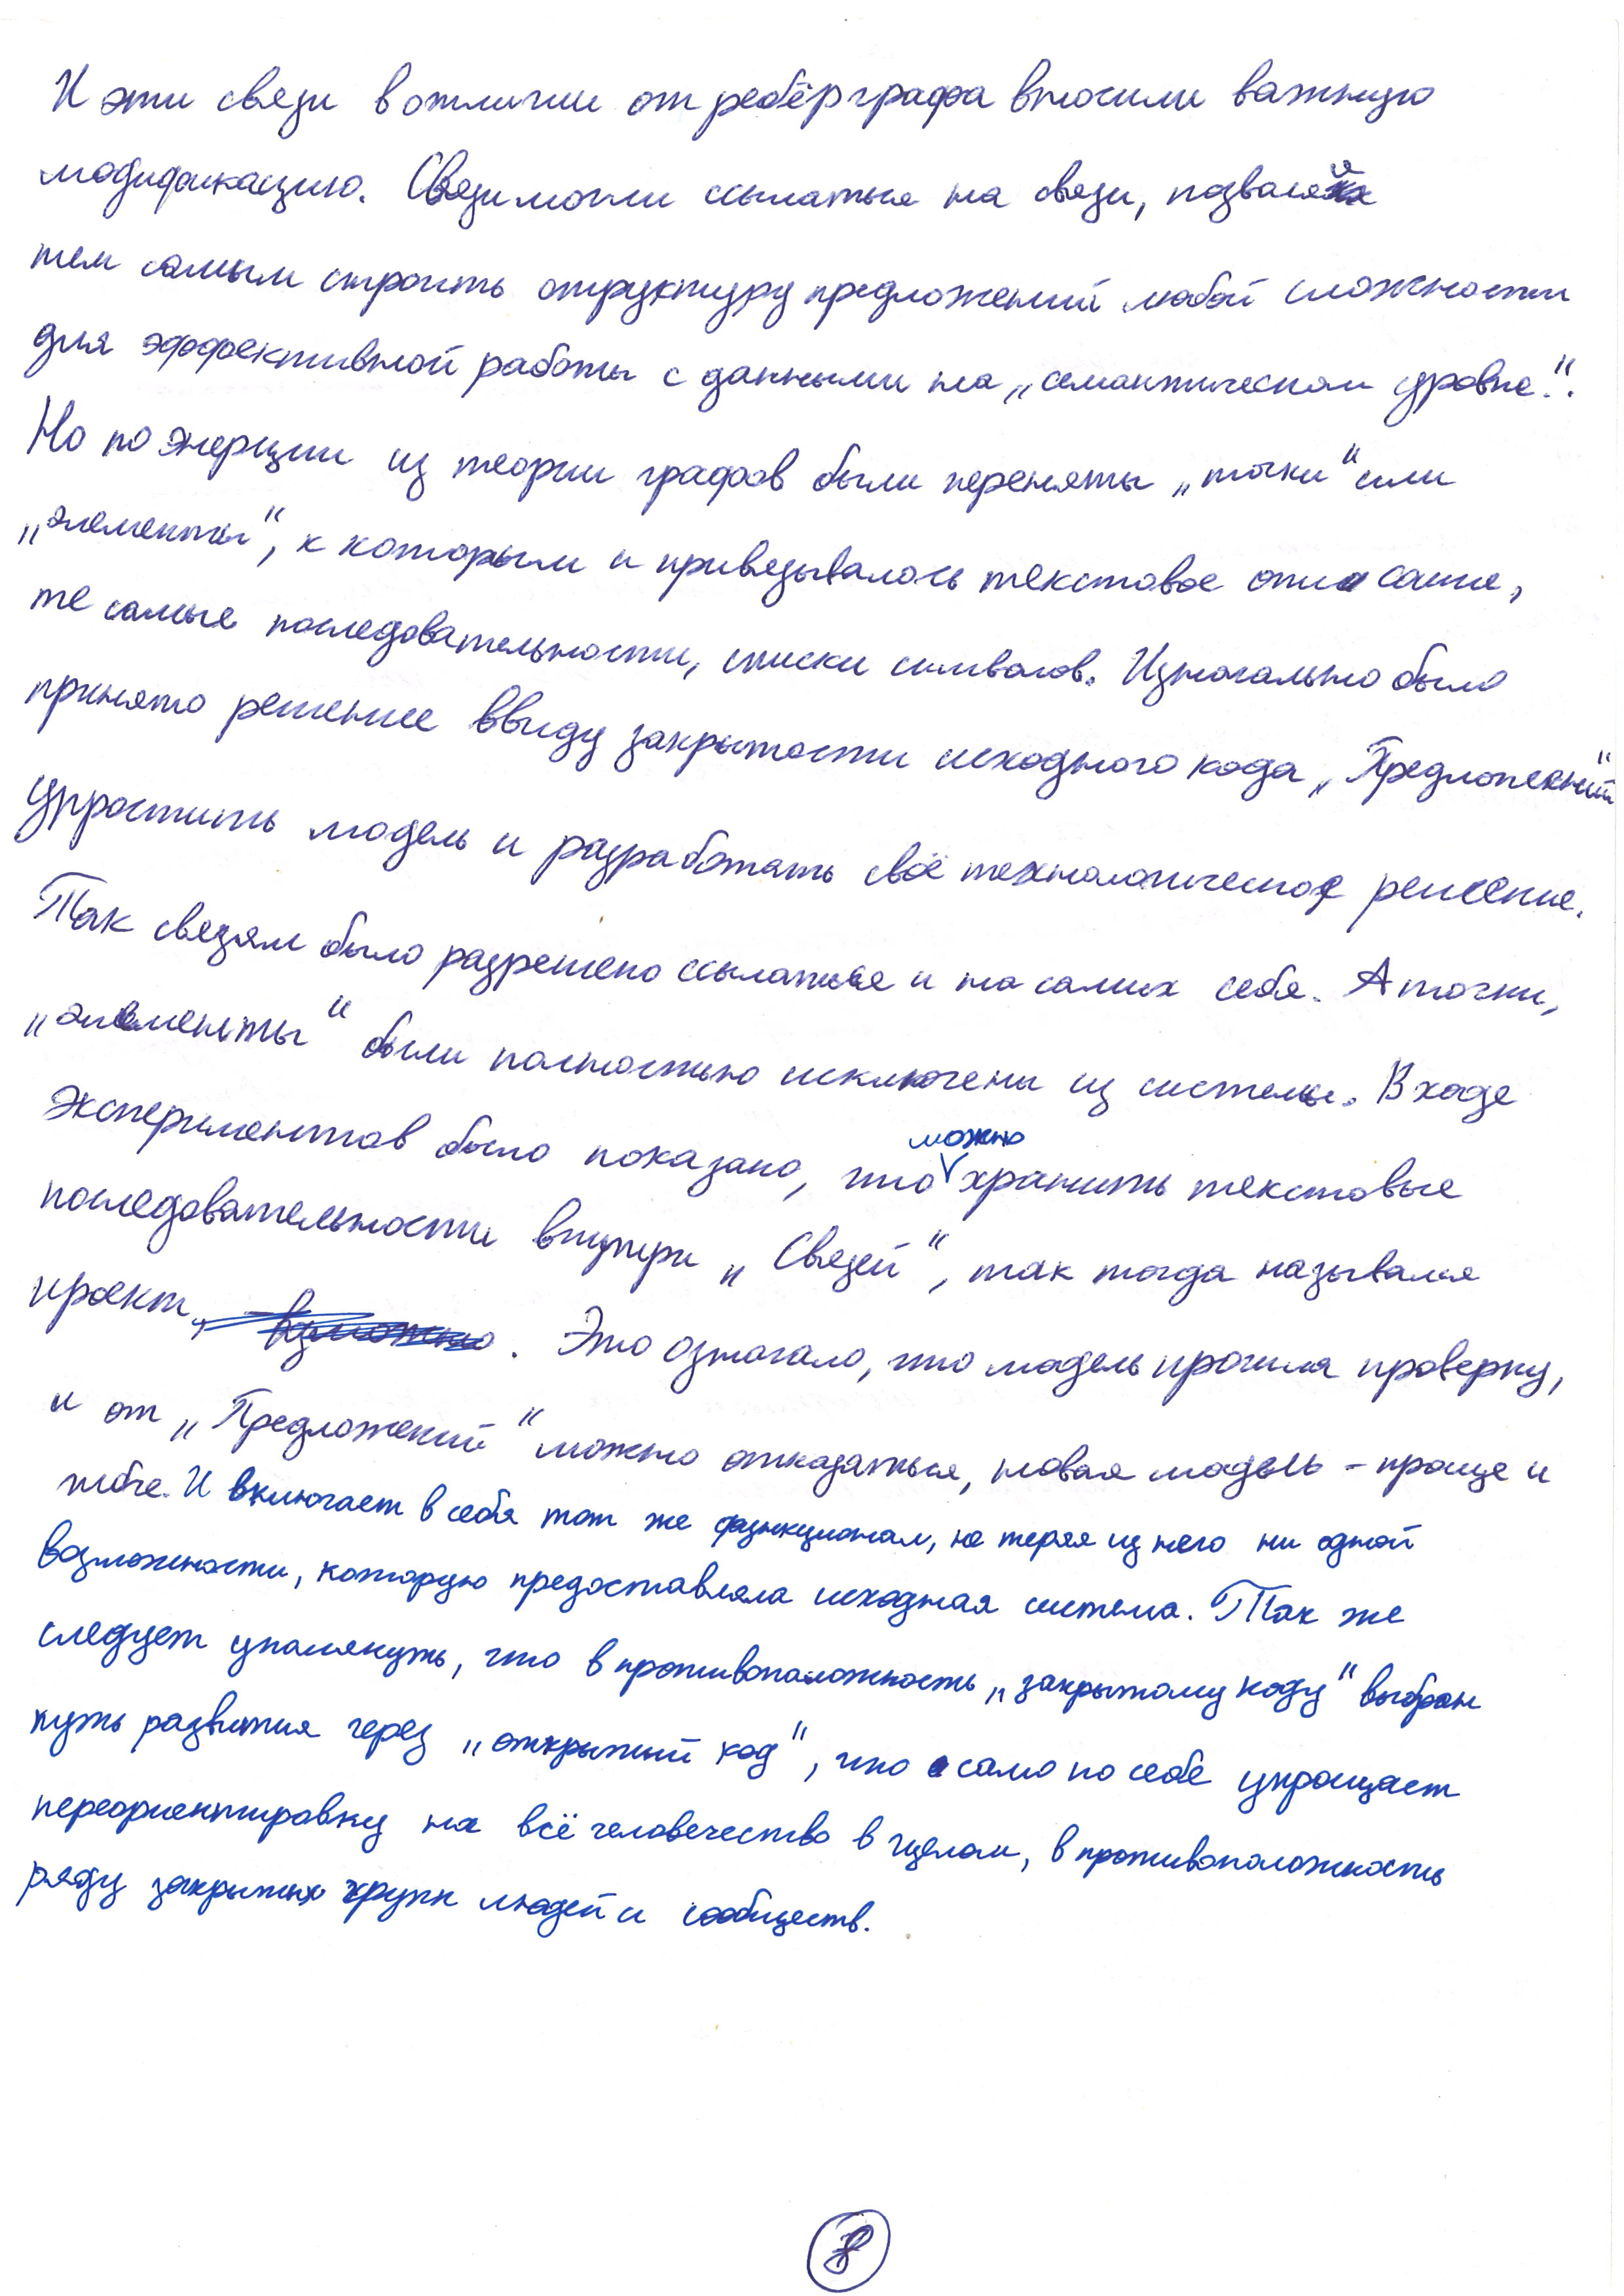 И эти связи в отличии от рёбер графа вносили важную
модификацию. Связи могли ссылаться на связи, позволяя
тем самым строить структуру предложений любой сложности
для эффективной работы с данными на „семантическом уровне“.
Но по энерции из теории графов были переняты „точки“ или
„элементы“, к которым и привязывалось текстовое описание,
те самые последовательности, списки символов. Изначально было
принято решение ввиду закрытости исходного кода „Предложений“
упростить модель и разработать своё технологическое решение.
Так связям было разрешено ссылаться и на самих себя. А точки,
„элементы“ были полностью исключены из системы. В ходе
экспериментов было показано, что можно хранить текстовые
последовательности внутри „Связей“, так тогда назывался
проект. Это означало, что модель прошла проверку,
и от „Предложений“ можно отказаться, новая модель – проще и
гибче. И включает в себя тот же функционал, не теряя из него ни одной
возможности, которую предоставляла исходная система. Так же
следует упомянуть, что в противоположность „закрытому коду“ выбран
путь развития через „открытый код“, что само по себе упрощает
переориентировку на всё человечество в целом, в противоположность
ряду закрытых групп людей и сообществ.